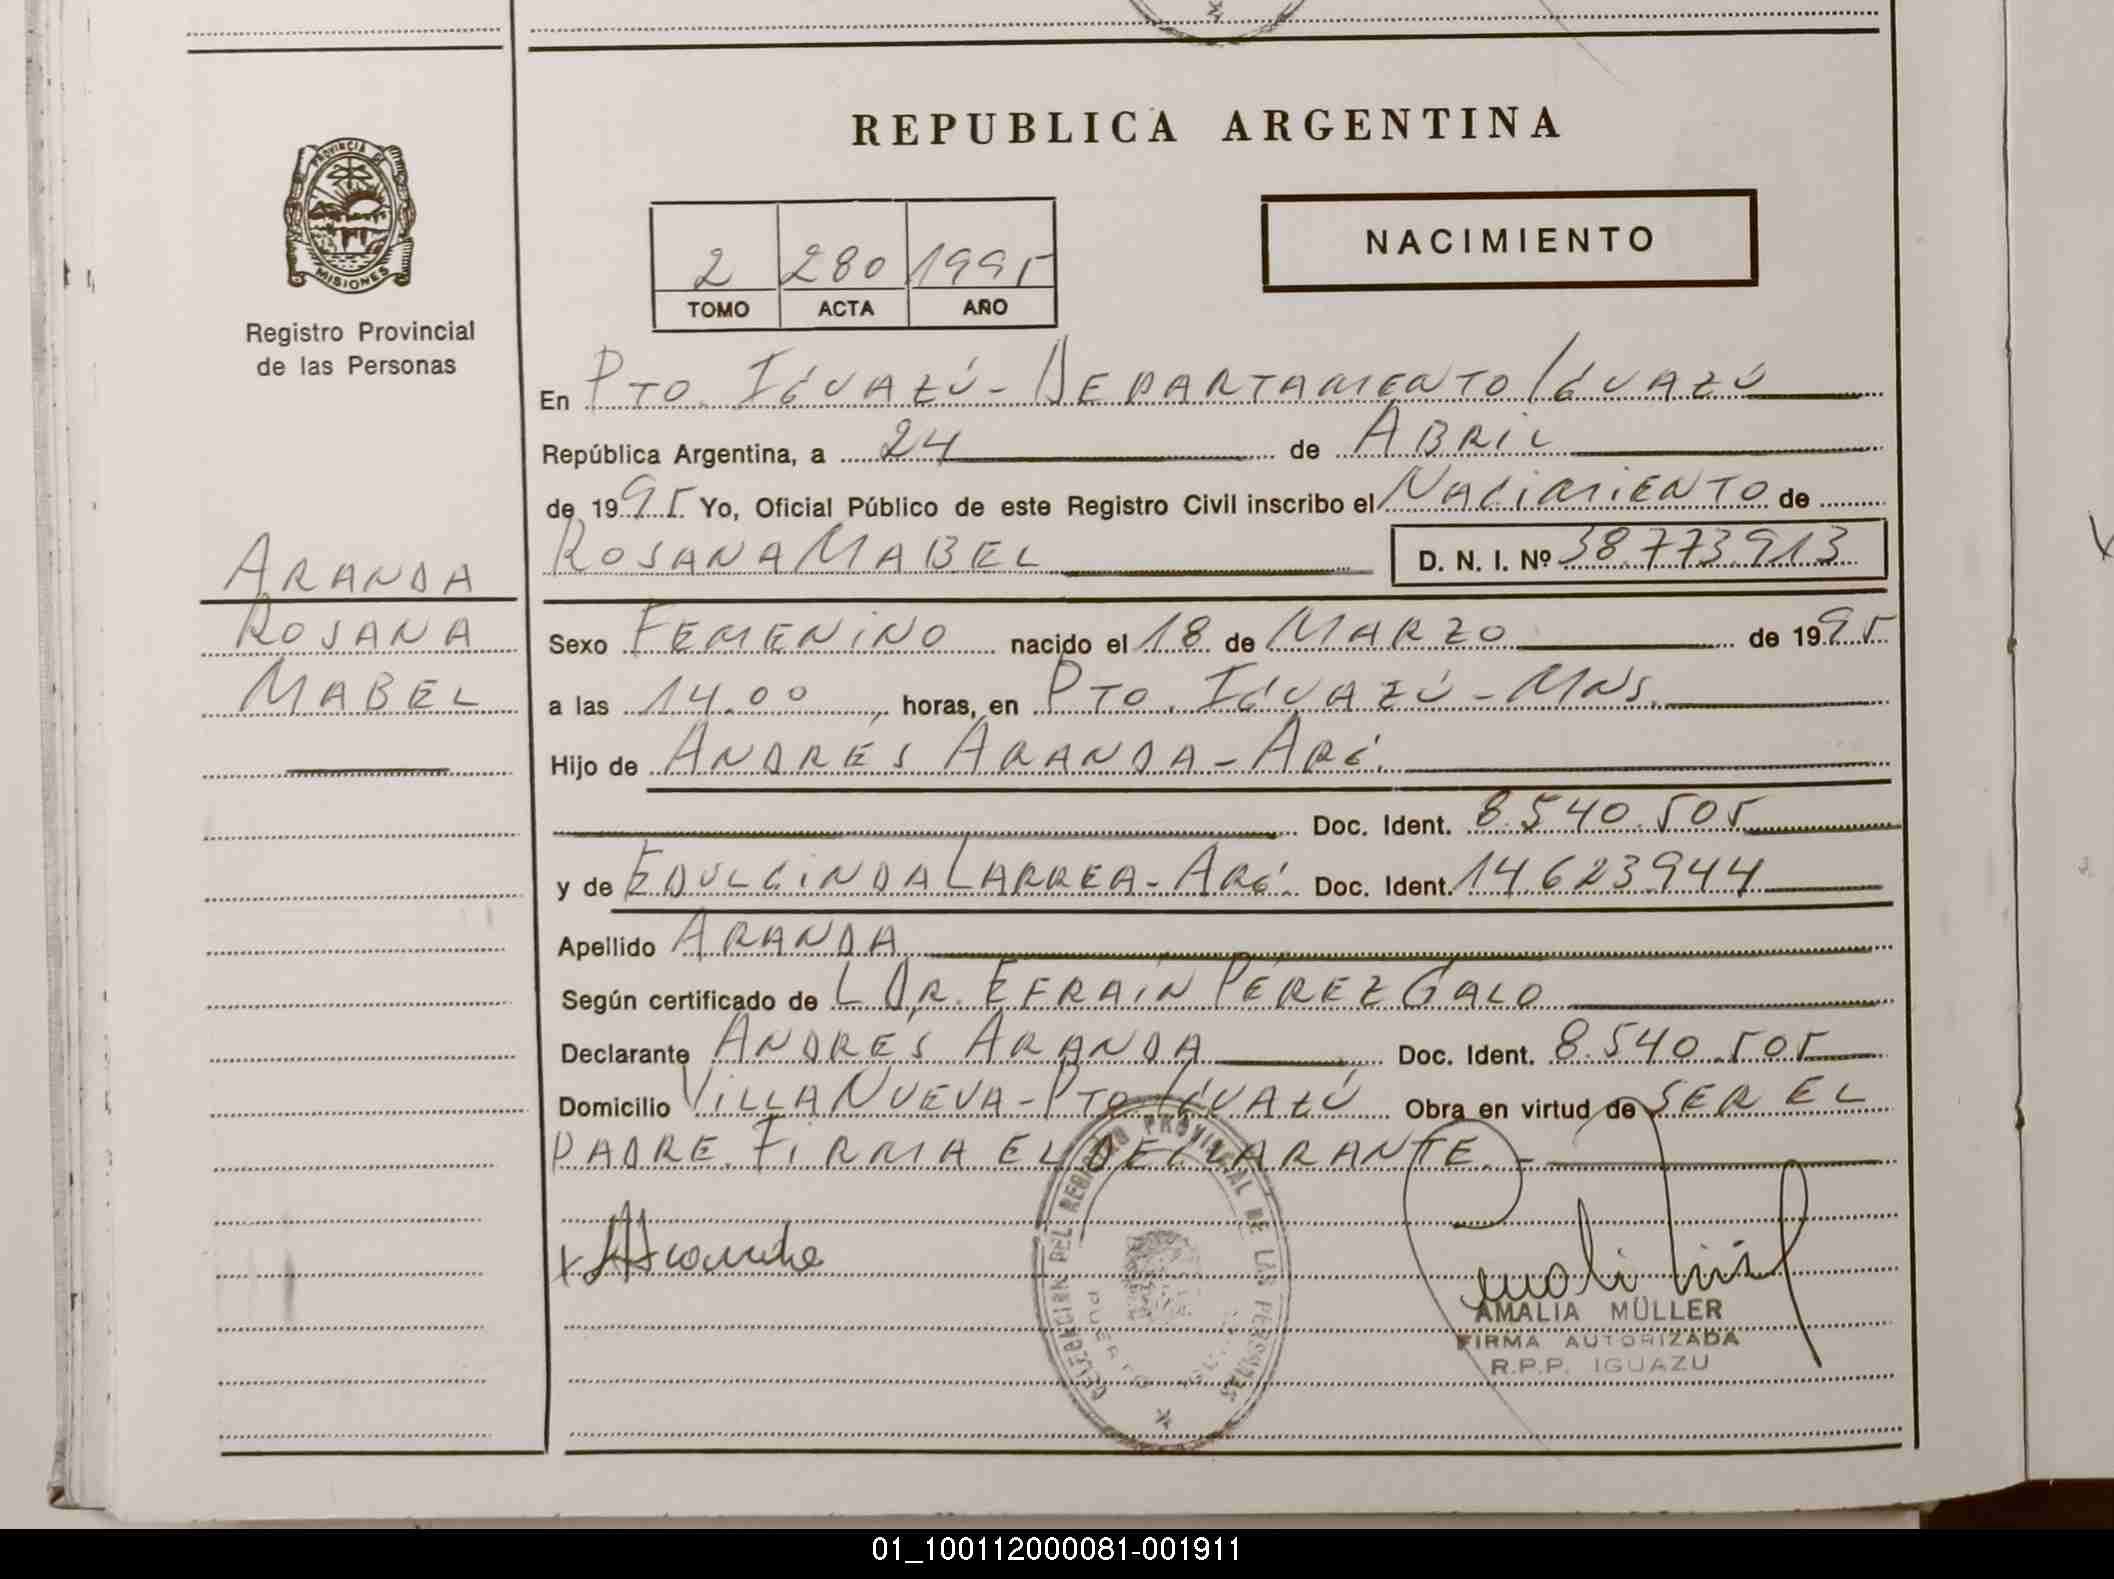 REPUBLICA ARGENTINA
PROVINCIA DE
MISIONES
Registro Provincial
de las Personas
2 280 1995
TOMO ACTA AÑO
NACIMIENTO
En PTO. IGUAZÚ - DEPARTAMENTO IGUAZÚ
República Argentina, a 24 de ABRIL
de 1995 Yo, Oficial Público de este Registro Civil inscribo el NACIMIENTO de
ROSANA MABEL D. N. I. Nº 38.773.913
ARANDA
ROSANA
MABEL
Sexo FEMENINO nacido el 18 de MARZO de 1995
a las 14.00 horas, en PTO. IGUAZÚ - MNS.
Hijo de ANDRES ARANDA - ARG.
Doc. Ident. 8.540.505
y de EDULCINDA LARREA - ARG. Doc. Ident. 14.623.944
Apellido ARANDA
Según certificado de L DR. EFRAÍN PÉREZ GALO
Declarante ANDRES ARANDA Doc. Ident. 8.540.505
Domicilio VILLA NUEVA - PTO IGUAZÚ Obra en virtud de SER EL
PADRE. FIRMA EL DECLARANTE. -
x AAranda
DELEGACION DEL REGISTRO PROVINCIAL DE LAS PERSONAS
PUERTO
AMALIA MÜLLER
FIRMA AUTORIZADA
R.P.P. IGUAZU
01_100112000081-001911